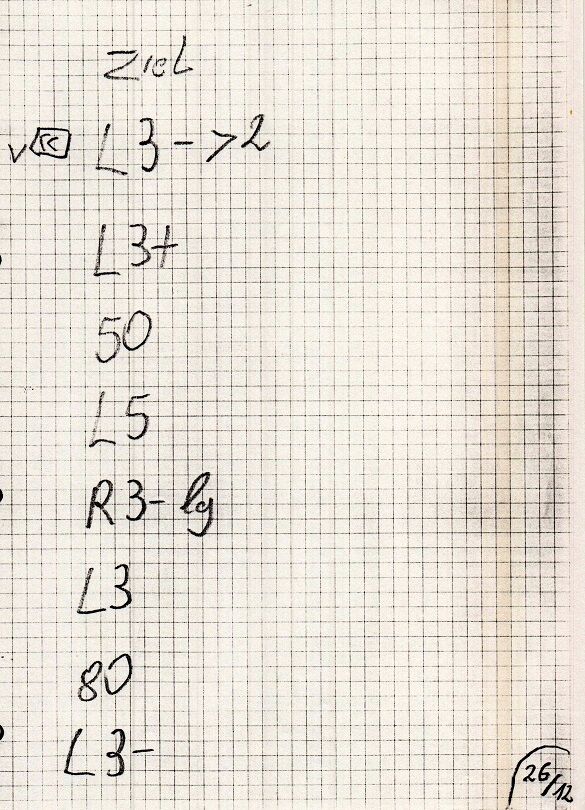 Ziel
v << L 3 - > 2
L 3+
50
L 5
R 3- lg
L 3
80
L 3-
26/12